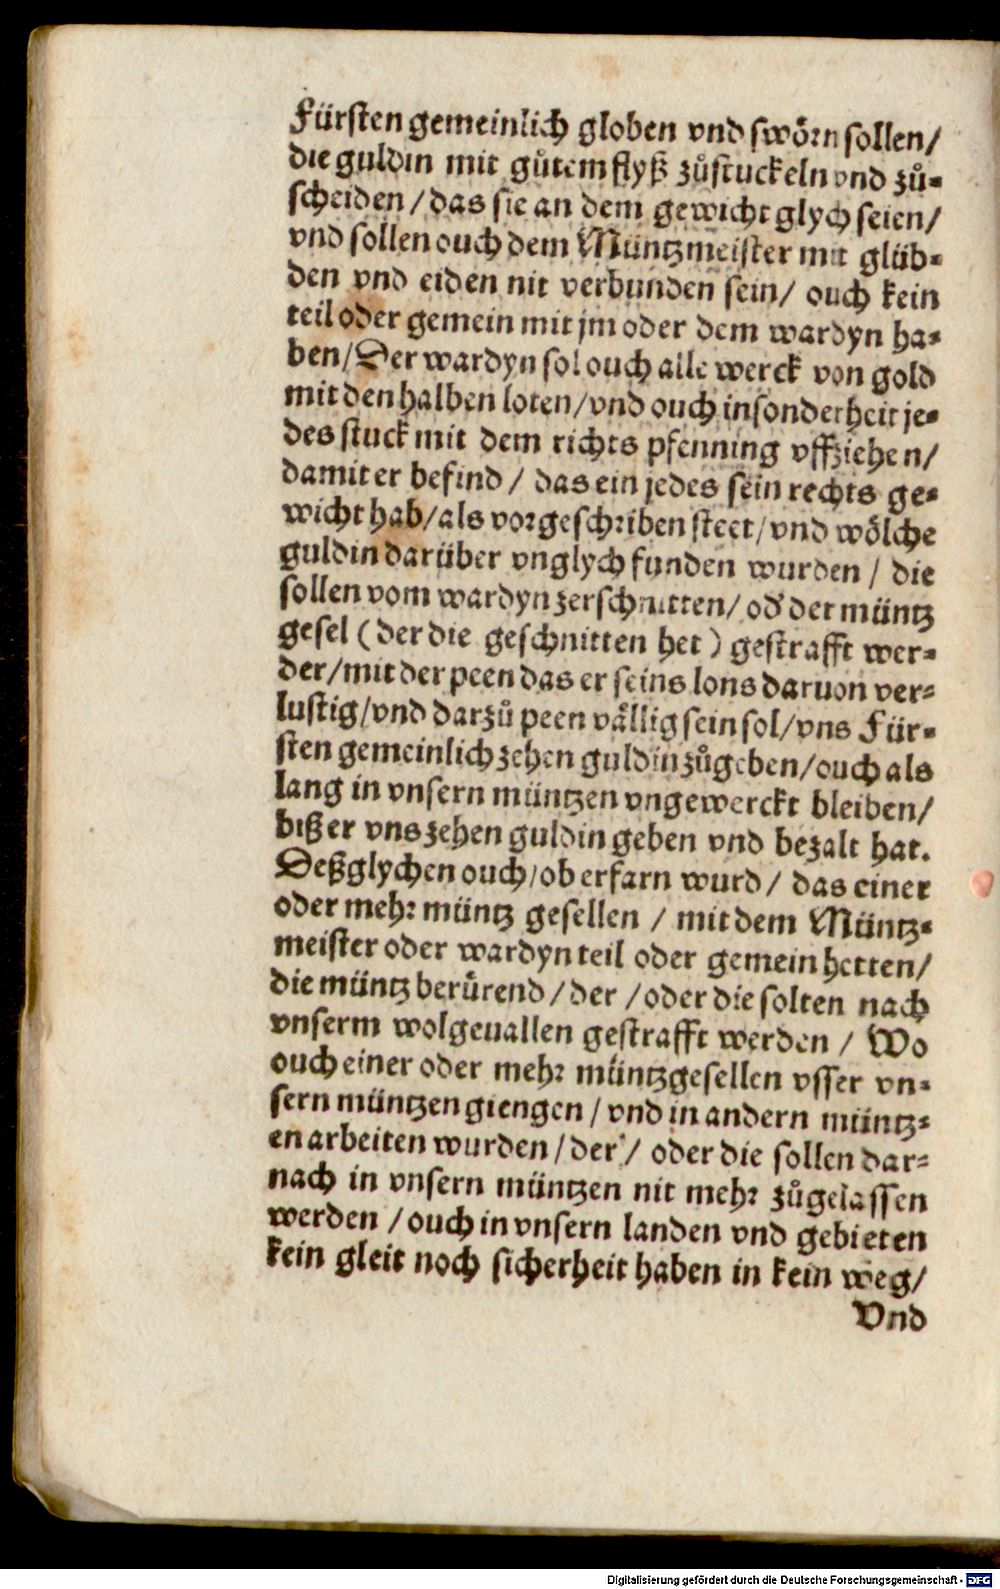 Fürsten gemeinlich globen vnd swoͤrn sollen/
die guldin mit guͦtem flyß zuͦstuckeln vnd zuͦ-
scheiden / das sie an dem gewicht glych seien/
vnd sollen ouch dem Müntzmeister mit glüb-
den vnd eiden nit verbunden sein/ ouch kein
teil oder gemein mit jm oder dem wardyn ha-
ben/ Der wardyn sol ouch alle werck von gold
mit den halben loten/vnd ouch insonderheit je-
des stuck mit dem richts pfenning vffziehen/
damit er befind / das ein jedes sein rechts ge-
wicht hab/als vorgeschriben steet/vnd woͤlche
guldin darüber vnglych funden wurden / die
sollen vom wardyn zerschnitten/ od' der müntz
gesel (der die geschnitten het) gestrafft wer-
der/mit der peen das er seins lons daruon ver-
lustig/vnd darzuͦ peen vaͤllig sein sol/vns Für-
sten gemeinlich zehen guldin zuͦgeben/ouch als
lang in vnsern müntzen vngewerckt bleiben/
biß er vns zehen guldin geben vnd bezalt hat.
Deßglychen ouch/ob erfarn wurd/ das einer
oder mehr müntz gesellen / mit dem Müntz-
meister oder wardyn teil oder gemein hetten/
die müntz beruͤrend/der /oder die solten nach
vnserm wolgeuallen gestrafft werden / Wo
ouch einer oder mehr müntzgesellen vsser vn-
sern müntzen giengen / vnd in andern müntz-
en arbeiten wurden/der / oder die sollen dar-
nach in vnsern müntzen nit mehr zuͦgelassen
werden /ouch in vnsern landen vnd gebieten
kein gleit noch sicherheit haben in kein weg/
Vnd
Digitalisierung gefördert durch die Deutsche Forschungsgemeinschaft - DFG